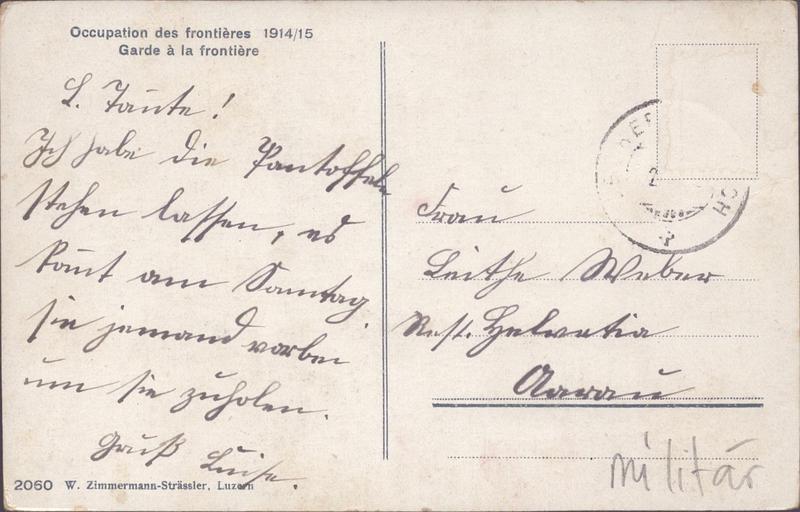 Occupation des frontières 1914/15
Garde à la frontière
L. Tante!
Ich habe die Pantoffeln
stehen lassen, es
kommt am Sonntag
sie jemand vorbei
um sie zuholen.
Gruß
Luise.
2060 W. Zimmermann-Strässler, Luzern
Frau
Weber
Rest. Helvetia
Aarau
militär